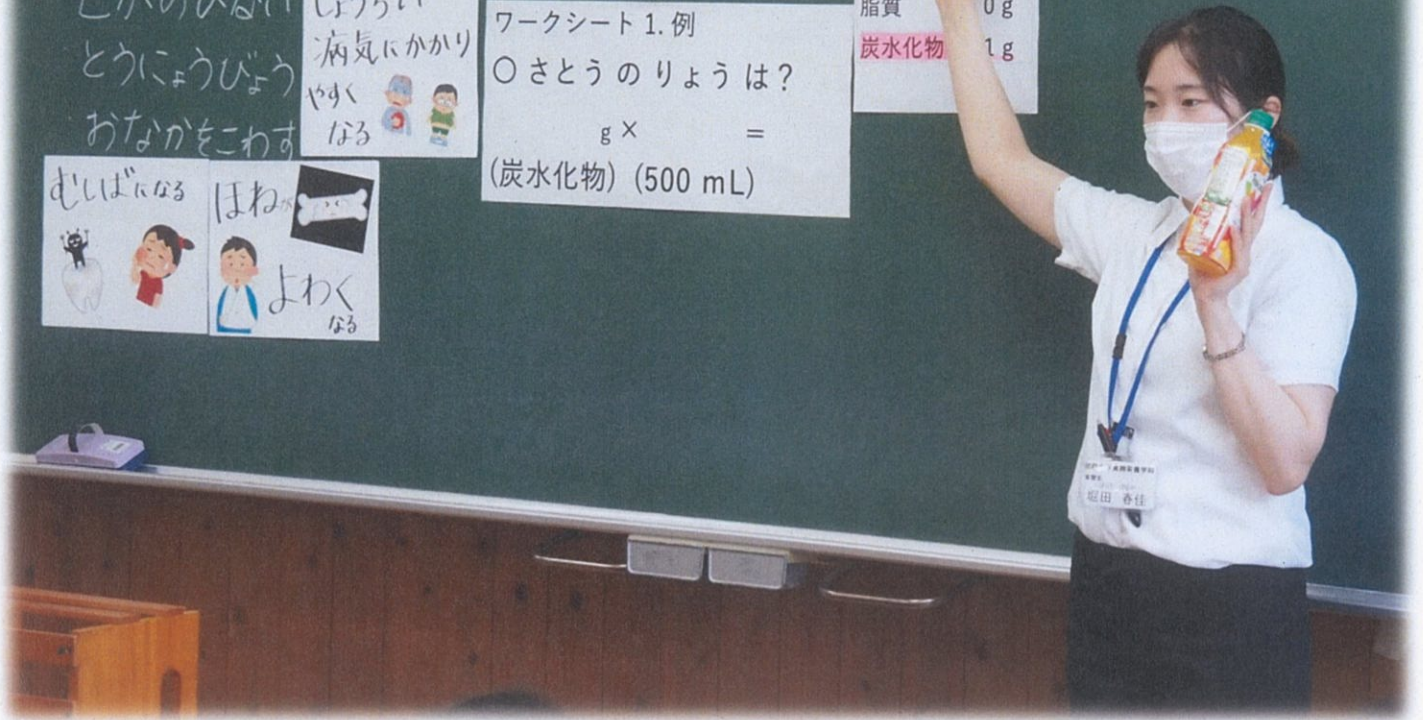 とうにょうびょう
おなかをこわす
しょうらい
病気にかかり
やすく
なる
むしばになる
ほねが
よわく
なる
ワークシート 1. 例
○ さとう の りょう は？
g × =
(炭水化物) (500 mL)
脂質 0 g
炭水化物 1 g
食物栄養学科
堀田 春佳